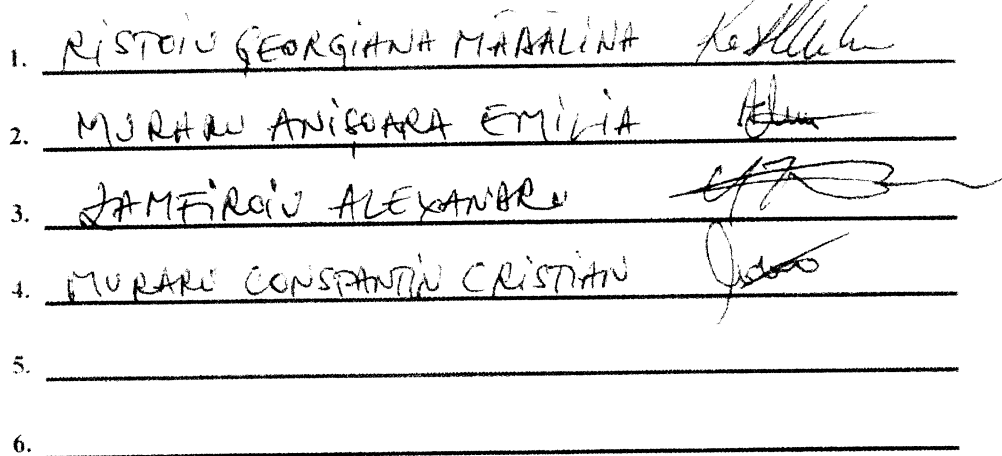 1. RISTOIU GEORGIANA MĂDĂLINA
2. MURARU ANIȘOARA EMILIA
3. ZAMFIROIU ALEXANDRU
4. MURARU CONSTANTIN CRISTIAN
5.
6.